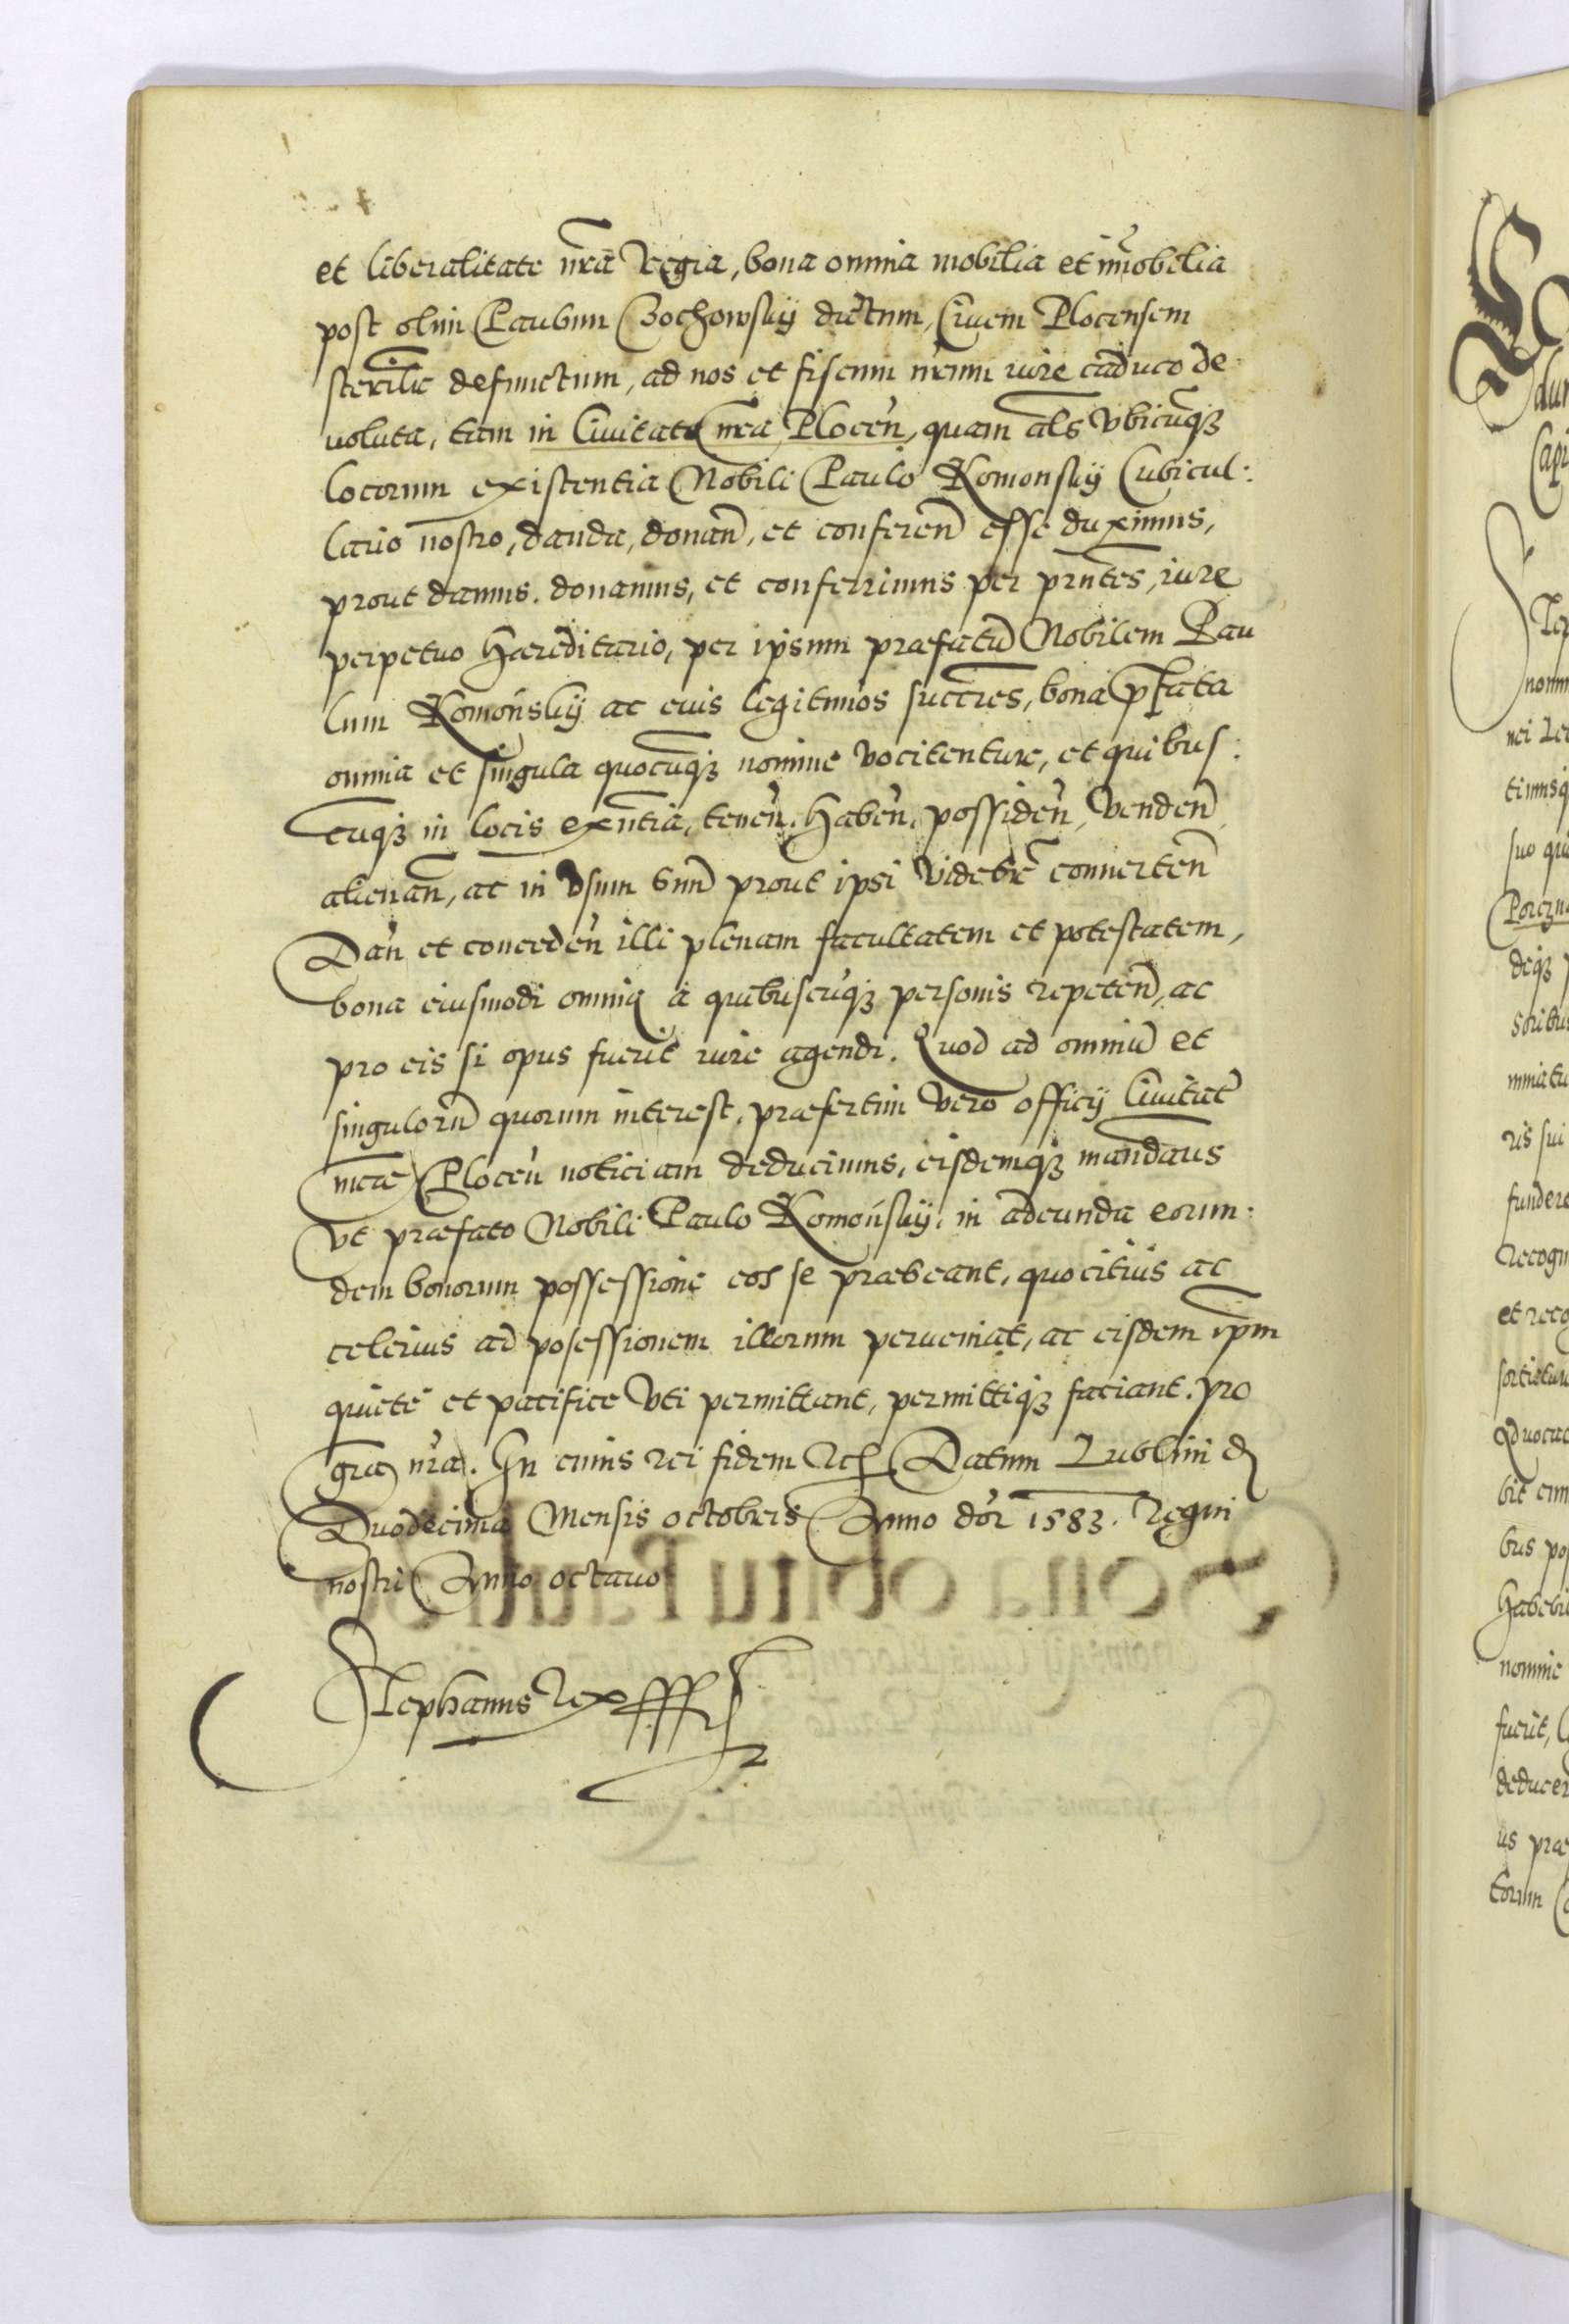 et liberalitate nr̃a Regia, bona omnia mobilia et im̃obilia
post olim Paulum Bochowskij dictum, Ciuem Plocensem
sterilie defunctum, ad nos et fiscum nr̃um iure caduco de
uoluta, tam in Ciuitate nr̃a Plocen̄, quam als̃ vbicũq3
locorum existentia Nobili Paulo Komonskij Cubicul:
lario nostro, danda, donan̄, et conferen̄ esse duximus,
prout damus. donamus, et conferrimus per prñtes, iure
perpetuo Haereditario, per ipsum praefatū Nobilem Pau
lum Komońskij ac eius legitimos succr̃es, bona pfata
omnia et singula quocũq3 nomine vocitenture, et quibus:
cuq3 in locis exñtia, tenen̄. Haben̄. possiden̄, venden̄,
alienan̄, ac in vsum suū prout ipsi videbr̃ conuerten̄
Dan̄ et conceden̄ illi plenam facultatem et potestatem,
bona eiusmodi omnia a quibuscūq3 personis repeten̄, ac
pro eis si opus fuerit iure agendi. Quod ad omniū et
singulorū quorum interest, praesertim vero officij Ciuitat̃
nr̃ae Plocen̄ noticiam deducimus, eisdemq3 mandam̃us
vt praefato Nobili Paulo Komońskij, in adeunda eorun:
dem bonorum possessione eos se praebeant, quo citius ac
celerius ad posessionem illorum perueniat, ac eisdem ip̃m
quiete et pacifice vti permittant, permittiq3 faciant. pro
gr̃a nr̃a. In cuius rei fidem Etc Datum Lublini d
Duodecima Mensis octobris Anno dn̄i 1583. Regni
nostri Anno octauo
Stephanus Rex